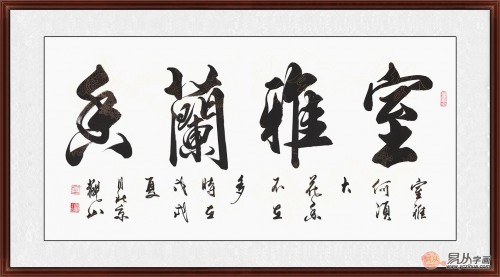 室雅蘭香
室雅
何須
大
花香
不在
多
時在
戊戌
夏
月北京
觀山
易从字画